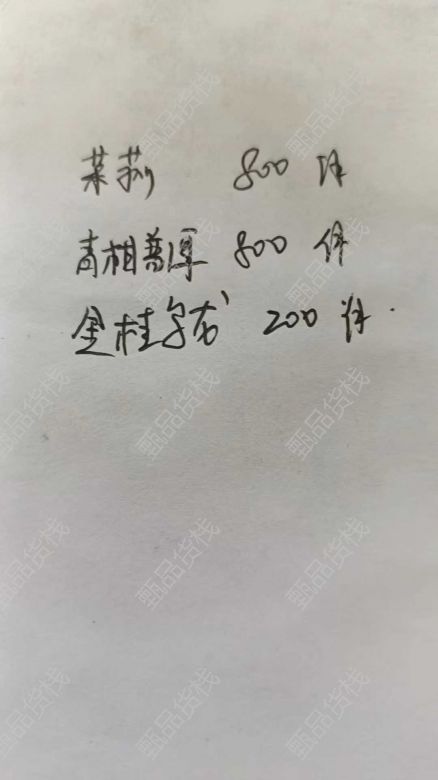 茉莉 800 件
青柑普洱 800 件
金桂乌龙 200 件
甄品货栈